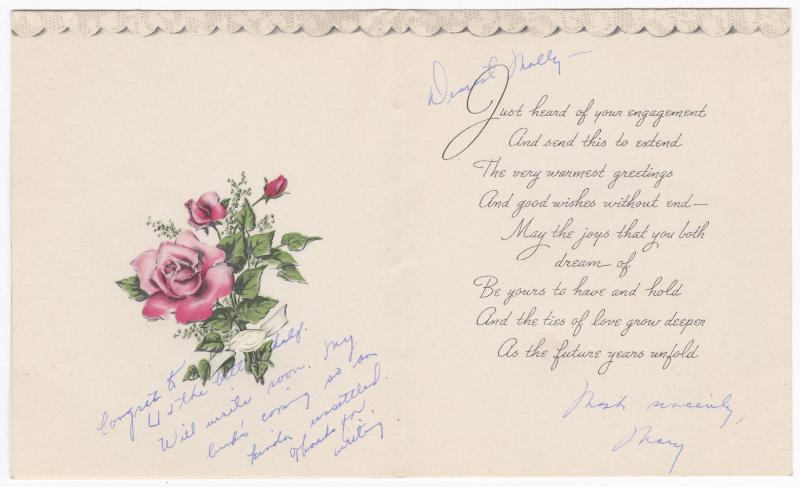 Congrat to
U & the better half.
Will write soon. My
bud's coming so am
kinda unsettled.
Thanks for
writing.
Dearest Molly —
Just heard of your engagement
And send this to extend
The very warmest greetings
And good wishes without end—
May the joys that you both
dream of
Be yours to have and hold
And the ties of love grow deeper
As the future years unfold
Most sincerely,
Mary